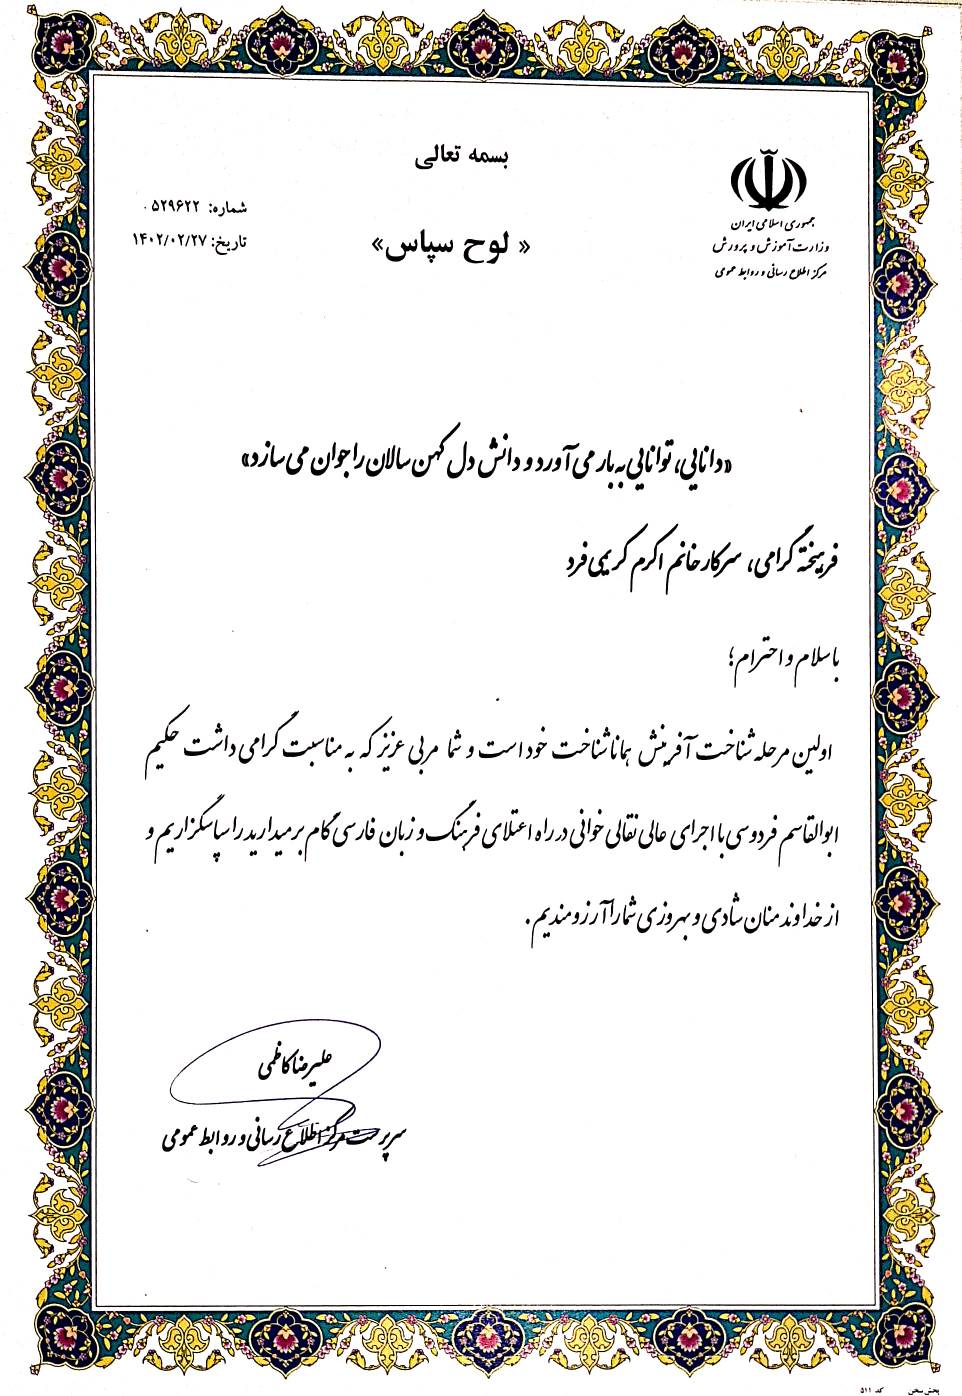 بسمه تعالی
جمهوری اسلامی ایران
وزارت آموزش و پرورش
مرکز اطلاع رسانی و روابط عمومی
شماره: ۵۲۹۶۲۲
تاریخ: ۱۴۰۲/۰۲/۲۷
« لوح سپاس»
«دانایی، توانایی به بار می آورد و دانش دل کهن سالان را جوان می سازد»
فرهیخته گرامی، سرکار خانم اکرم کریمی فرد
با سلام و احترام؛
اولین مرحله شناخت آفرینش همانا شناخت خود است و شما مربی عزیز که به مناسبت گرامی داشت حکیم
ابوالقاسم فردوسی با اجرای عالی نقالی خوانی در راه اعتلای فرهنگ و زبان فارسی گام برمیدارید را سپاسگزاریم و
از خداوند منان شادی و بهروزی شما را آرزومندیم.
علیرضا کاظمی
سرپرست مرکز اطلاع رسانی و روابط عمومی
پخش سخن کد ۵۱۱